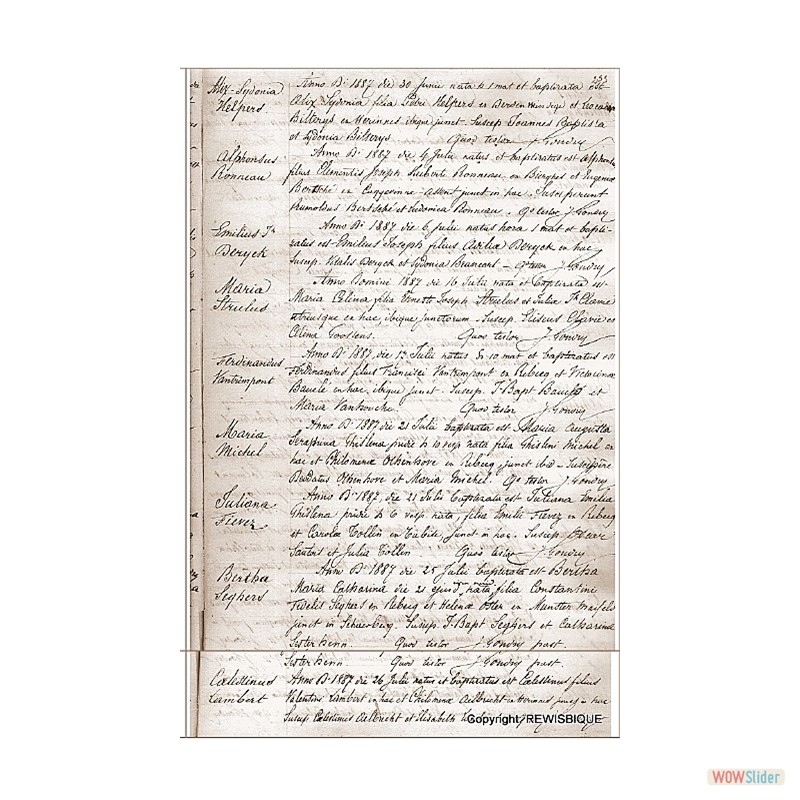 233
Alix-Sydonia
Helpers
Anno Di 1887 die 30 Junii nata h 1 mat et baptizata est
Alix Sydonia filia Petri Helpers ex Bersen et
Bilterys ex Herinnes ibique junct - Suscep Joannes Baptista
et Sydonia Bilterys. Quod testor J. Gondry
Alphonsus
Ronneau
Anno Di 1887 die 4 Julii natus et baptizatus est Alphonsus
filius Clementis Joseph Ronneau ex Bierghes et Eugenia
Bertsché ex junct in hac. Susceperunt
Rumoldus Bertsché et Ludovica Ronneau. Qd testor J. Gondry
Emilius Jh
Deryck
Anno Di 1887 die 6 Julii natus hora 1 mat et bapti-
zatus est Emilius Joseph filius Deryck ex hac
Suscep. Vitalis Deryck et Sydonia Brancart - Qd testor J. Gondry
Maria
Strulus
Anno Domini 1887 die 16 Julii nata et baptizata est
Maria Celina filia Ernesti Joseph Strulus et Julia
utriusque ex hac, ibique junctorum. Suscep. Eliseus et
Celina Goossens. Quod testor J. Gondry
Ferdinandus
Vantrimpont
Anno Di 1887, die 13 Julii natus h 10 mat et baptizatus est
Ferdinandus filius Francisci Vantrimpont ex Rebecq et
ex hac, ibique junct - Suscep. J-Bapt et
Maria Quod testor J. Gondry
Maria
Michel
Anno Di 1887 die 21 Julii baptizata est Maria Augusta
Seraphina Ghislena pridie h 10 vesp nata filia Ghisleni Michel ex
hac et Philomena ex Rebecq junct ibid - Susceperunt
et Maria Michel. Qd testor J. Gondry
Juliana
Fievez
Anno Di 1887, die 21 Julii baptizata est Juliana Emilia
Ghislena pridie h 6 vesp nata, filia Emilii Fievez ex Rebecq
et Carola Tollin ex Tubise, junct in hac. Suscep
et Julia Tollin Quod testor J. Gondry
Bertha
Seghers
Anno Di 1887 die 25 Julii baptizata est Bertha
Maria Catharina die 21 ejusd nata, filia Constantini
Fidelis Seghers ex Rebecq et Helena ex Munster
junct in Schaerbeeg. Suscep. J-Bapt Seghers et Catharina
Quod testor J. Gondry past.
Quod testor J. Gondry past.
Cœlestinus
Lambert
Anno Di 1887 die 26 Julii natus et baptizatus est Cœlestinus filius
Valentini Lambert ex hac et Philomena Aelbrecht ex Herinnes junct in hac
Suscep Cœlestinus Aelbrecht et Elisabeth
Copyright REWISBIQUE
WOWSlider